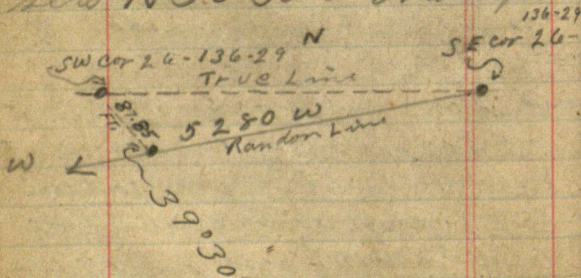 136-29
N
SW cor 26-136-29
SE cor 26-
True Line
87.85
Ft.
5280 W
Random Line
W
39°30